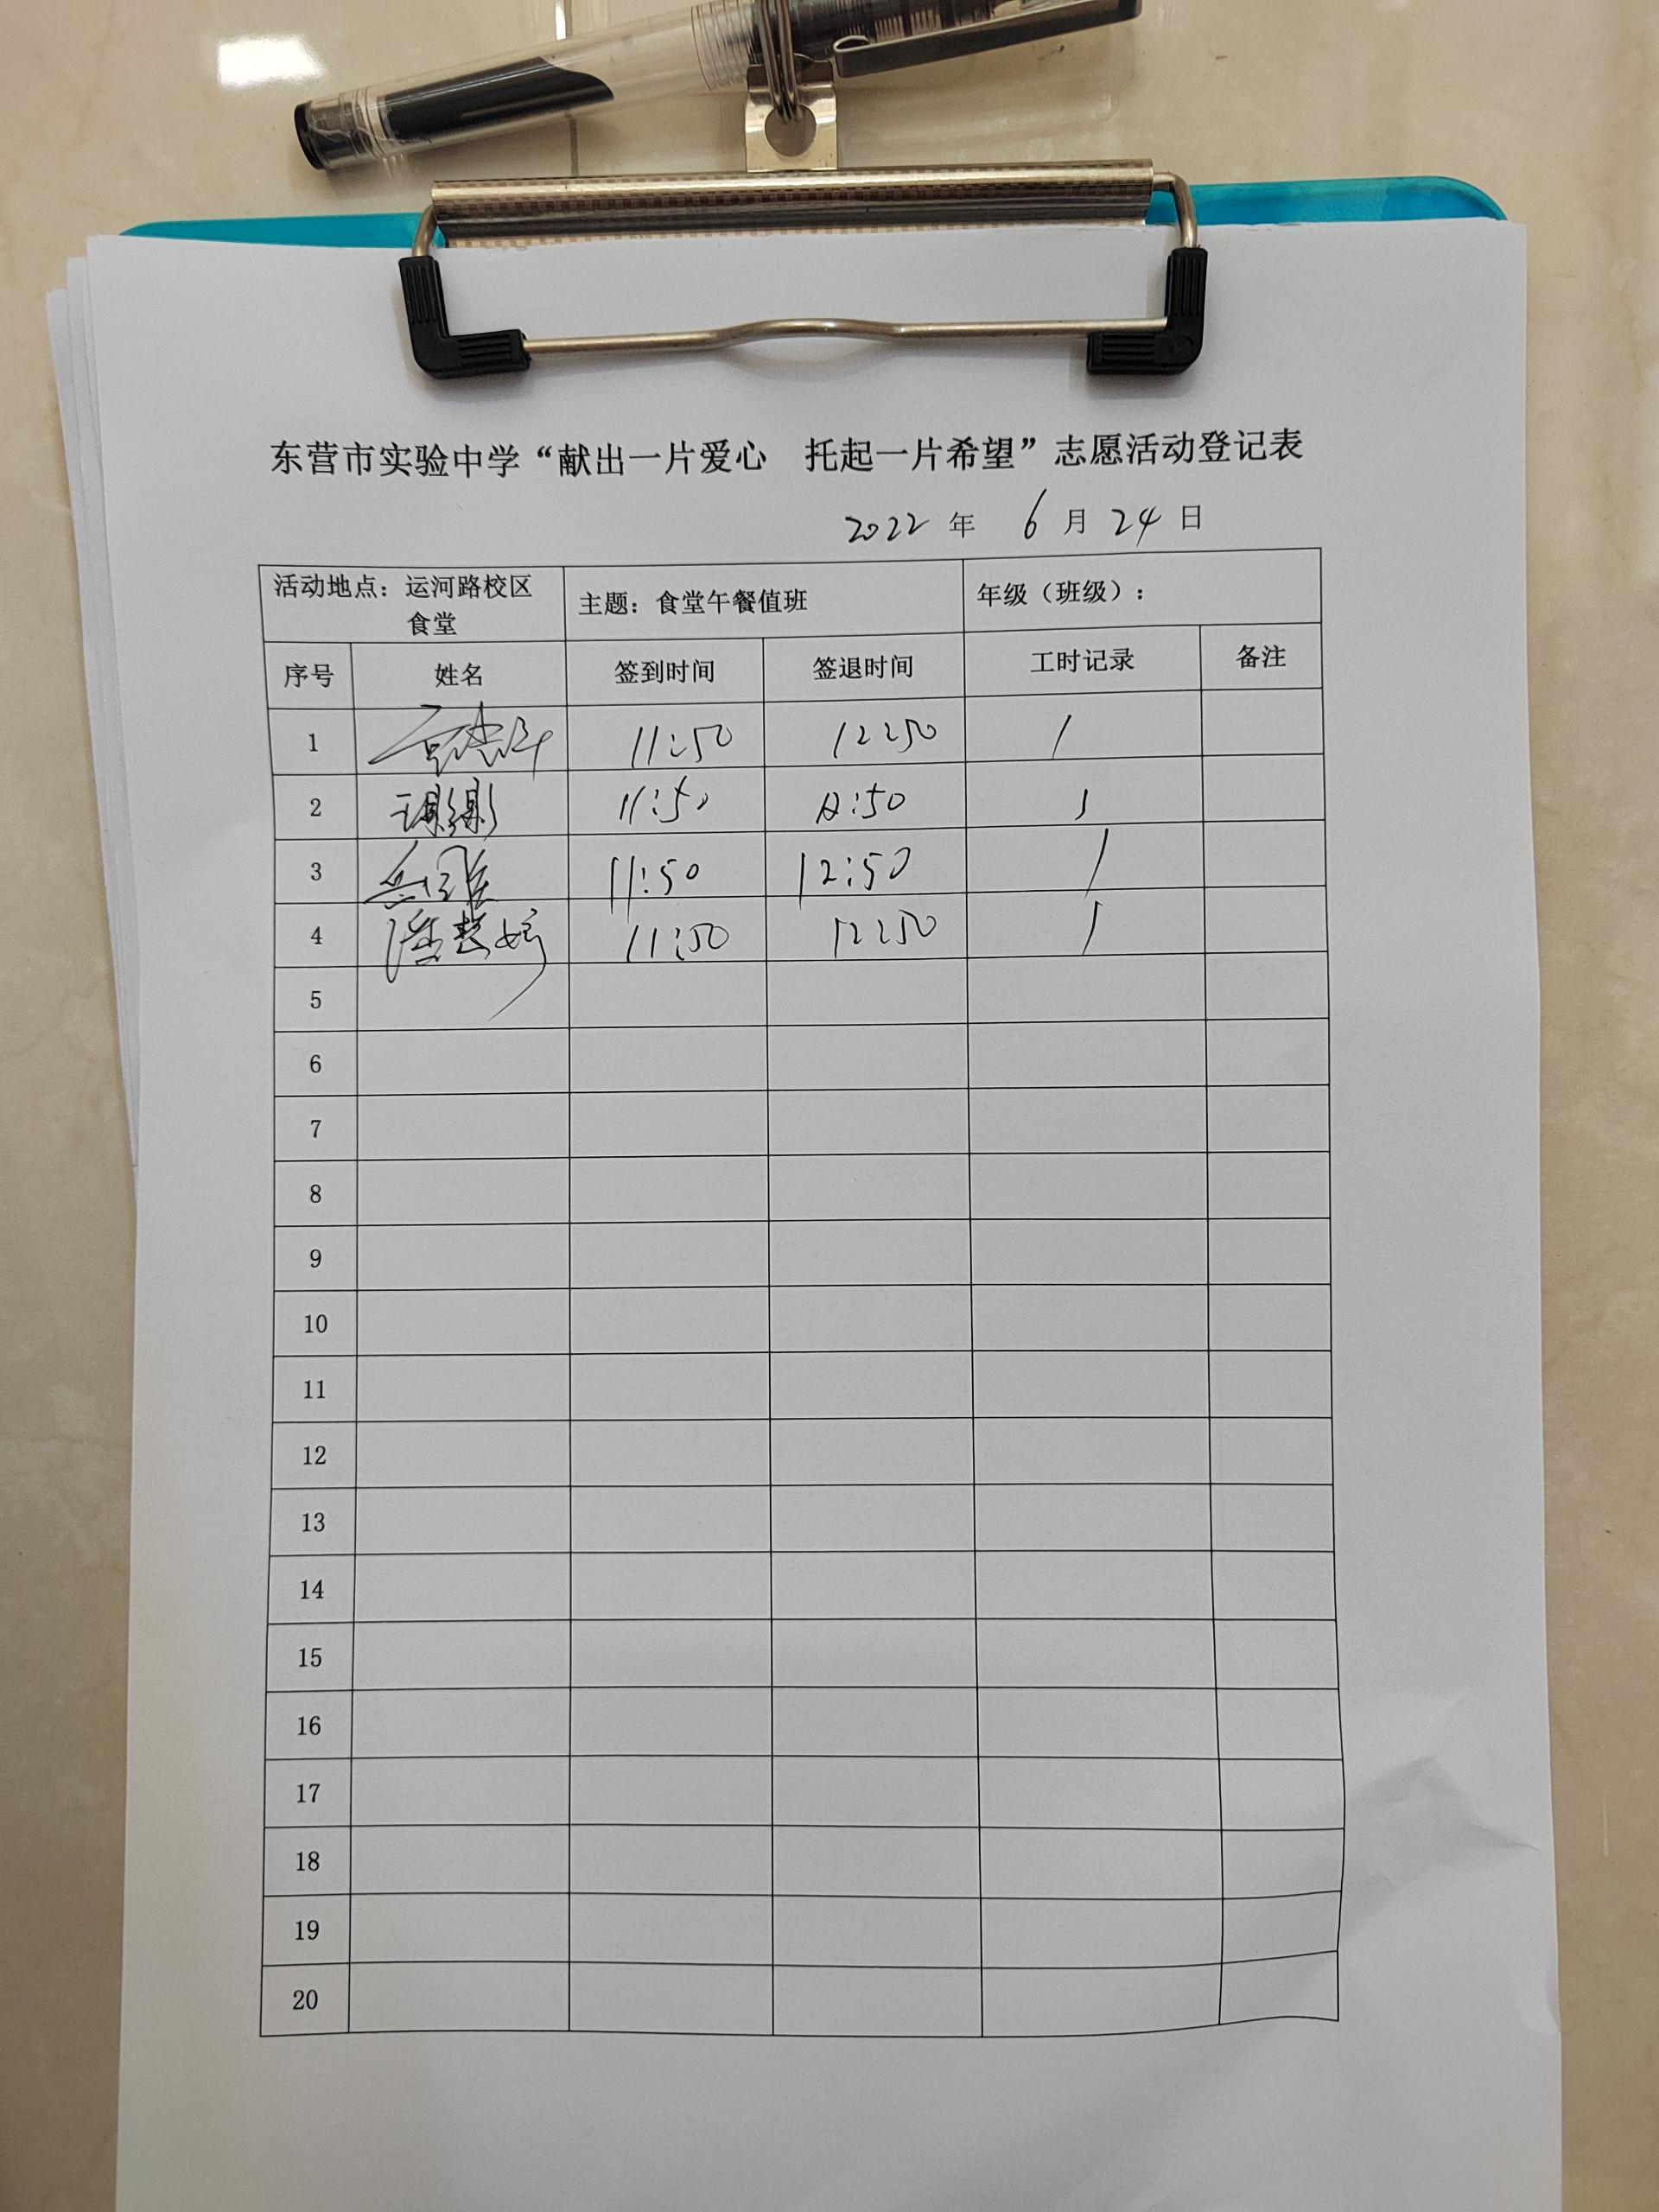 东营市实验中学“献出一片爱心　托起一片希望”志愿活动登记表
2022 年 6 月 24 日
活动地点：运河路校区食堂 主题：食堂午餐值班 年级（班级）：
序号 姓名 签到时间 签退时间 工时记录 备注
1 11:50 12:50 1
2 11:50 12:50 1
3 11:50 12:50 1
4 潘慧婷 11:50 12:50 1
5
6
7
8
9
10
11
12
13
14
15
16
17
18
19
20